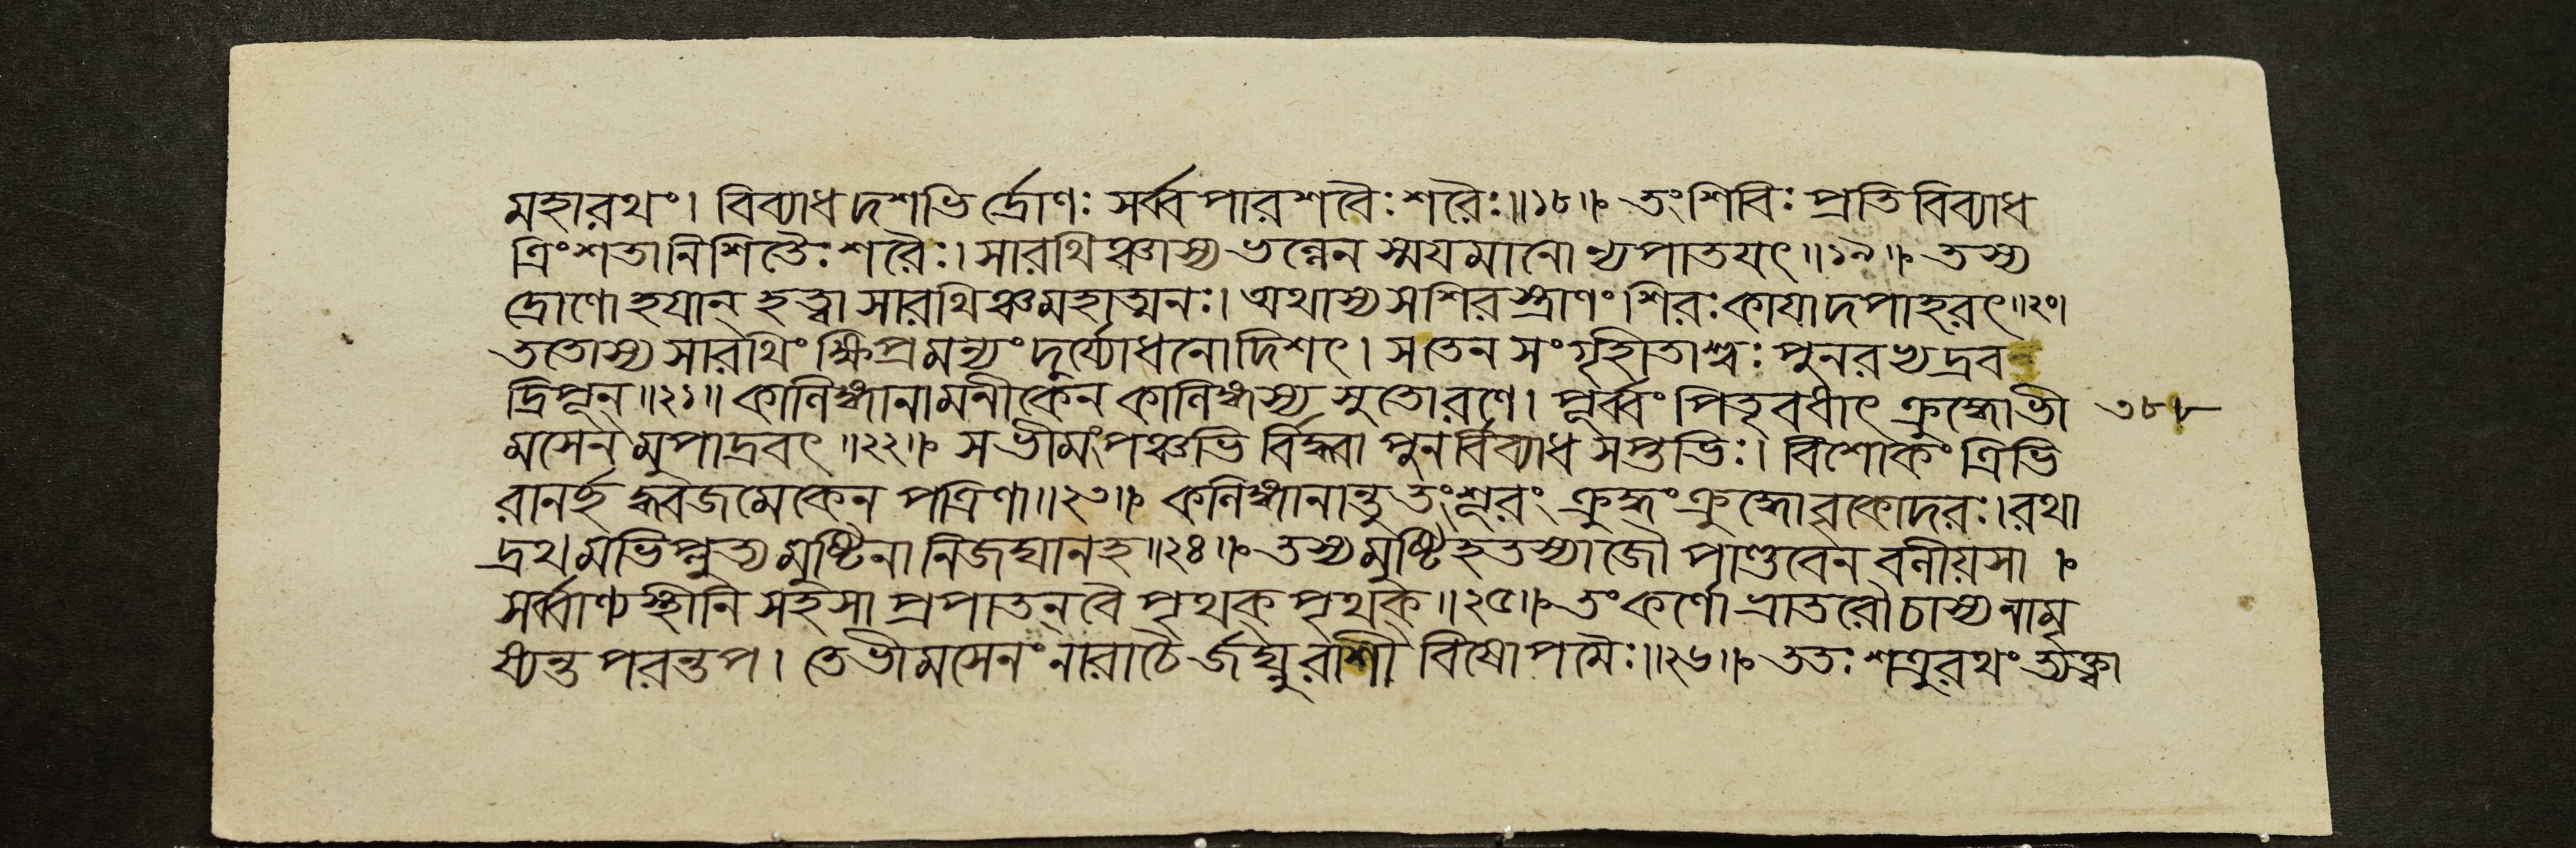 মহারথং। বিব্যাধ দশভি র্দ্রোণঃ সর্ব্বপারশবৈঃ শরৈঃ॥১৮॥ তং শিবিঃ প্রতি বিব্যাধ
ত্রিংশতা নিশিতৈঃ শরৈঃ। সারথিঞ্চাস্য ভল্লেন স্ময়মানো ন্যপাতয়ৎ॥১৯॥ তস্য
দ্রোণো হয়ান্ হত্বা সারথিঞ্চ মহাত্মনঃ। অথাস্য সশিরস্ত্রাণং শিরঃ কায়াদপাহরৎ॥২০।
ততোস্য সারথিং ক্ষিপ্রমন্যং দুর্য্যোধনোদিশৎ। স তেন সংগৃহীতাশ্বঃ পুনরভ্যদ্রব
দ্রিপূন্॥২১॥ কালিঙ্গানামনীকেন কালিঙ্গস্য সুতো রণে। পূর্ব্বং পিতৃবধাৎ ক্রুদ্ধো ভী ৩৮৮
মসেনমুপাদ্রবৎ॥২২॥ স ভীমং পঞ্চভি র্বিদ্ধ্বা পুনর্বিব্যাধ সপ্তভিঃ। বিশোকং ত্রিভি
রানর্চ্ছ দ্ধ্বজমেকেন পত্রিণা॥২৩॥ কলিঙ্গানান্তু তং শূরং ক্রুদ্ধং ক্রুদ্ধো বৃকোদরঃ। রথা
দ্রথমভিপ্লুত্য মুষ্টিনা নিজঘান হ॥২৪॥ তস্য মুষ্টিহতস্যাজৌ পাণ্ডবেন বলীয়সা।
সর্ব্বাণ্যস্থীনি সহসা প্রপাতন্ বৈ পৃথক্ পৃথক্॥২৫॥ তং কর্ণো ভ্রাতরৌ চাস্য নামৃ
ষ্যন্ত পরন্তপ। তে ভীমসেনং নারাচৈ র্জঘ্নুরাশী বিষোপমৈঃ॥২৬॥ ততঃ শত্রুরথং ত্যক্ত্বা